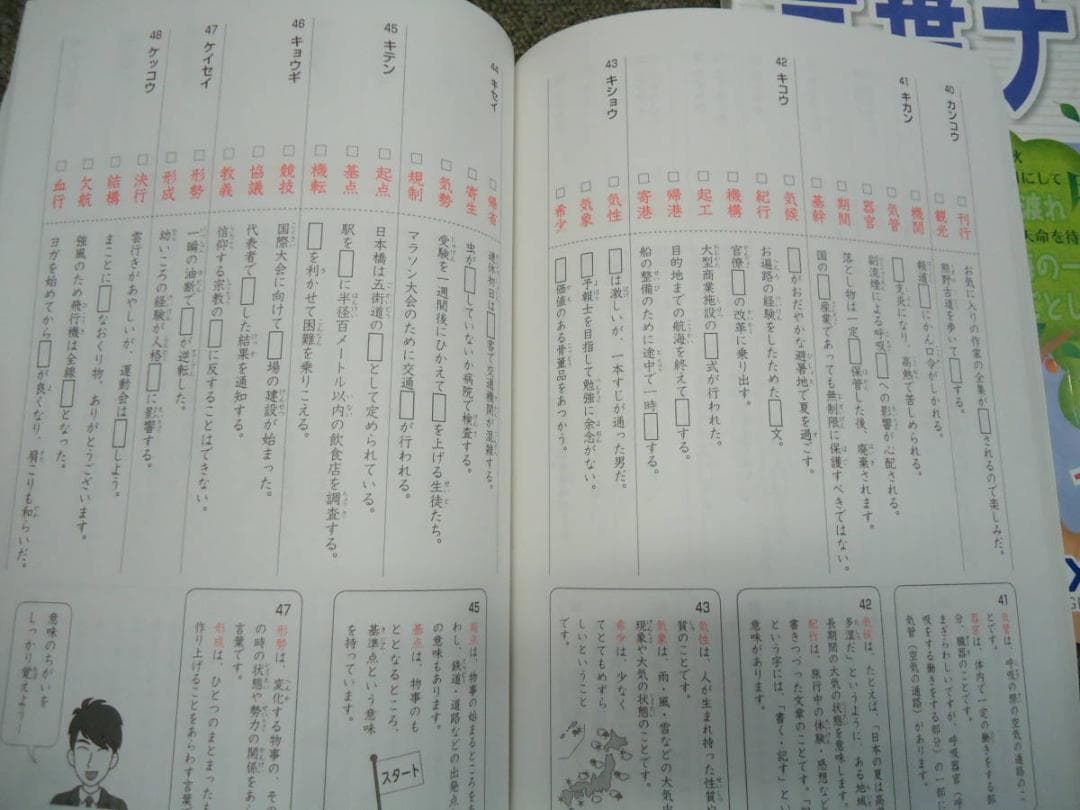 40 カンコウ
□ 刊行 お気に入りの作家の全集が□されるので楽しみだ。
□ 観光 熊野古道を歩いて□する。
41 キカン
□ 機関 報道□にかん口令がしかれる。
□ 気管 □支炎になり、高熱で苦しめられる。
□ 器官 副流煙による呼吸□への影響が心配される。
□ 期間 落とし物は一定□保管した後、廃棄されます。
□ 基幹 国の□産業であっても無制限に保護すべきではない。
42 キコウ
□ 気候 □がおだやかな避暑地で夏を過ごす。
□ 紀行 お遍路の経験をしたためた□文。
□ 機構 官僚□の改革に乗り出す。
□ 起工 大型商業施設の□式が行われた。
□ 帰港 目的地までの航海を終えて□する。
□ 寄港 船の整備のために途中で一時□する。
43 キショウ
□ 気性 □は激しいが、一本すじが通った男だ。
□ 気象 □予報士を目指して勉強に余念がない。
□ 希少 □価値のある骨董品をあつかう。
41
気管は、呼吸の際の空気の通路のこ
とです。
器官は、体内で一定の働きをする部
分、臓器のことです。
まぎらわしいですが、呼吸器官(呼
吸をする働きをする部分)の一部に
気管(空気の通路)があります。
42
気候は、たとえば、「日本の夏は高
多湿だ」というように、ある地域
長期間の大気の状態を意味します。
紀行は、旅行中の体験・感想など
書きつづった文章のことです。「紀
という字には、「書く・記す」という
意味があります。
43
気性は、人が生まれ持った性質
質のことです。
気象は、雨・風・雪などの大気中
現象や大気の状態のことです。
希少は、少なく
てとてもめずら
しいということ
です。
44 キセイ
□ 帰省 連休初日は□客で交通機関が混雑する。
□ 寄生 虫が□していないか病院で検査する。
□ 気勢 受験を一週間後にひかえて□を上げる生徒たち。
□ 規制 マラソン大会のために交通□が行われる。
45 キテン
□ 起点 日本橋は五街道の□として定められている。
□ 基点 駅を□に半径百メートル以内の飲食店を調査する。
□ 機転 □を利かせて困難を乗りこえる。
46 キョウギ
□ 競技 国際大会に向けて□場の建設が始まった。
□ 協議 代表者で□した結果を通知する。
□ 教義 信仰する宗教の□に反することはできない。
47 ケイセイ
□ 形勢 一瞬の油断で□が逆転した。
□ 形成 幼いころの経験が人格□に影響する。
48 ケッコウ
□ 決行 雲行きがあやしいが、運動会は□しよう。
□ 結構 まことに□なおくり物、ありがとうございます。
□ 欠航 強風のため飛行機は全線□となった。
□ 血行 ヨガを始めてから□が良くなり、肩こりも和らいだ。
45
起点は、物事の始まるところを
わし、鉄道・道路などの出発点
の意味もあります。
基点は、物事のも
ととなるところ、
基準点という意味
を持っています。
スタート
47
形勢は、変化する物事の、そ
の時の状態や勢力の関係をあ
言葉です。
形成は、ひとつのまとまったも
作り上げることをあらわす言葉で
意味のちがいを
しっかり覚えよう!
言葉ナ